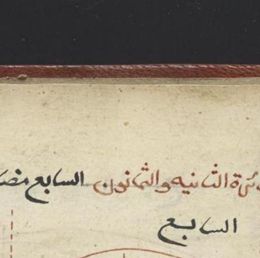 ئرة الثانيه والثمانون السابع مضا
السابع